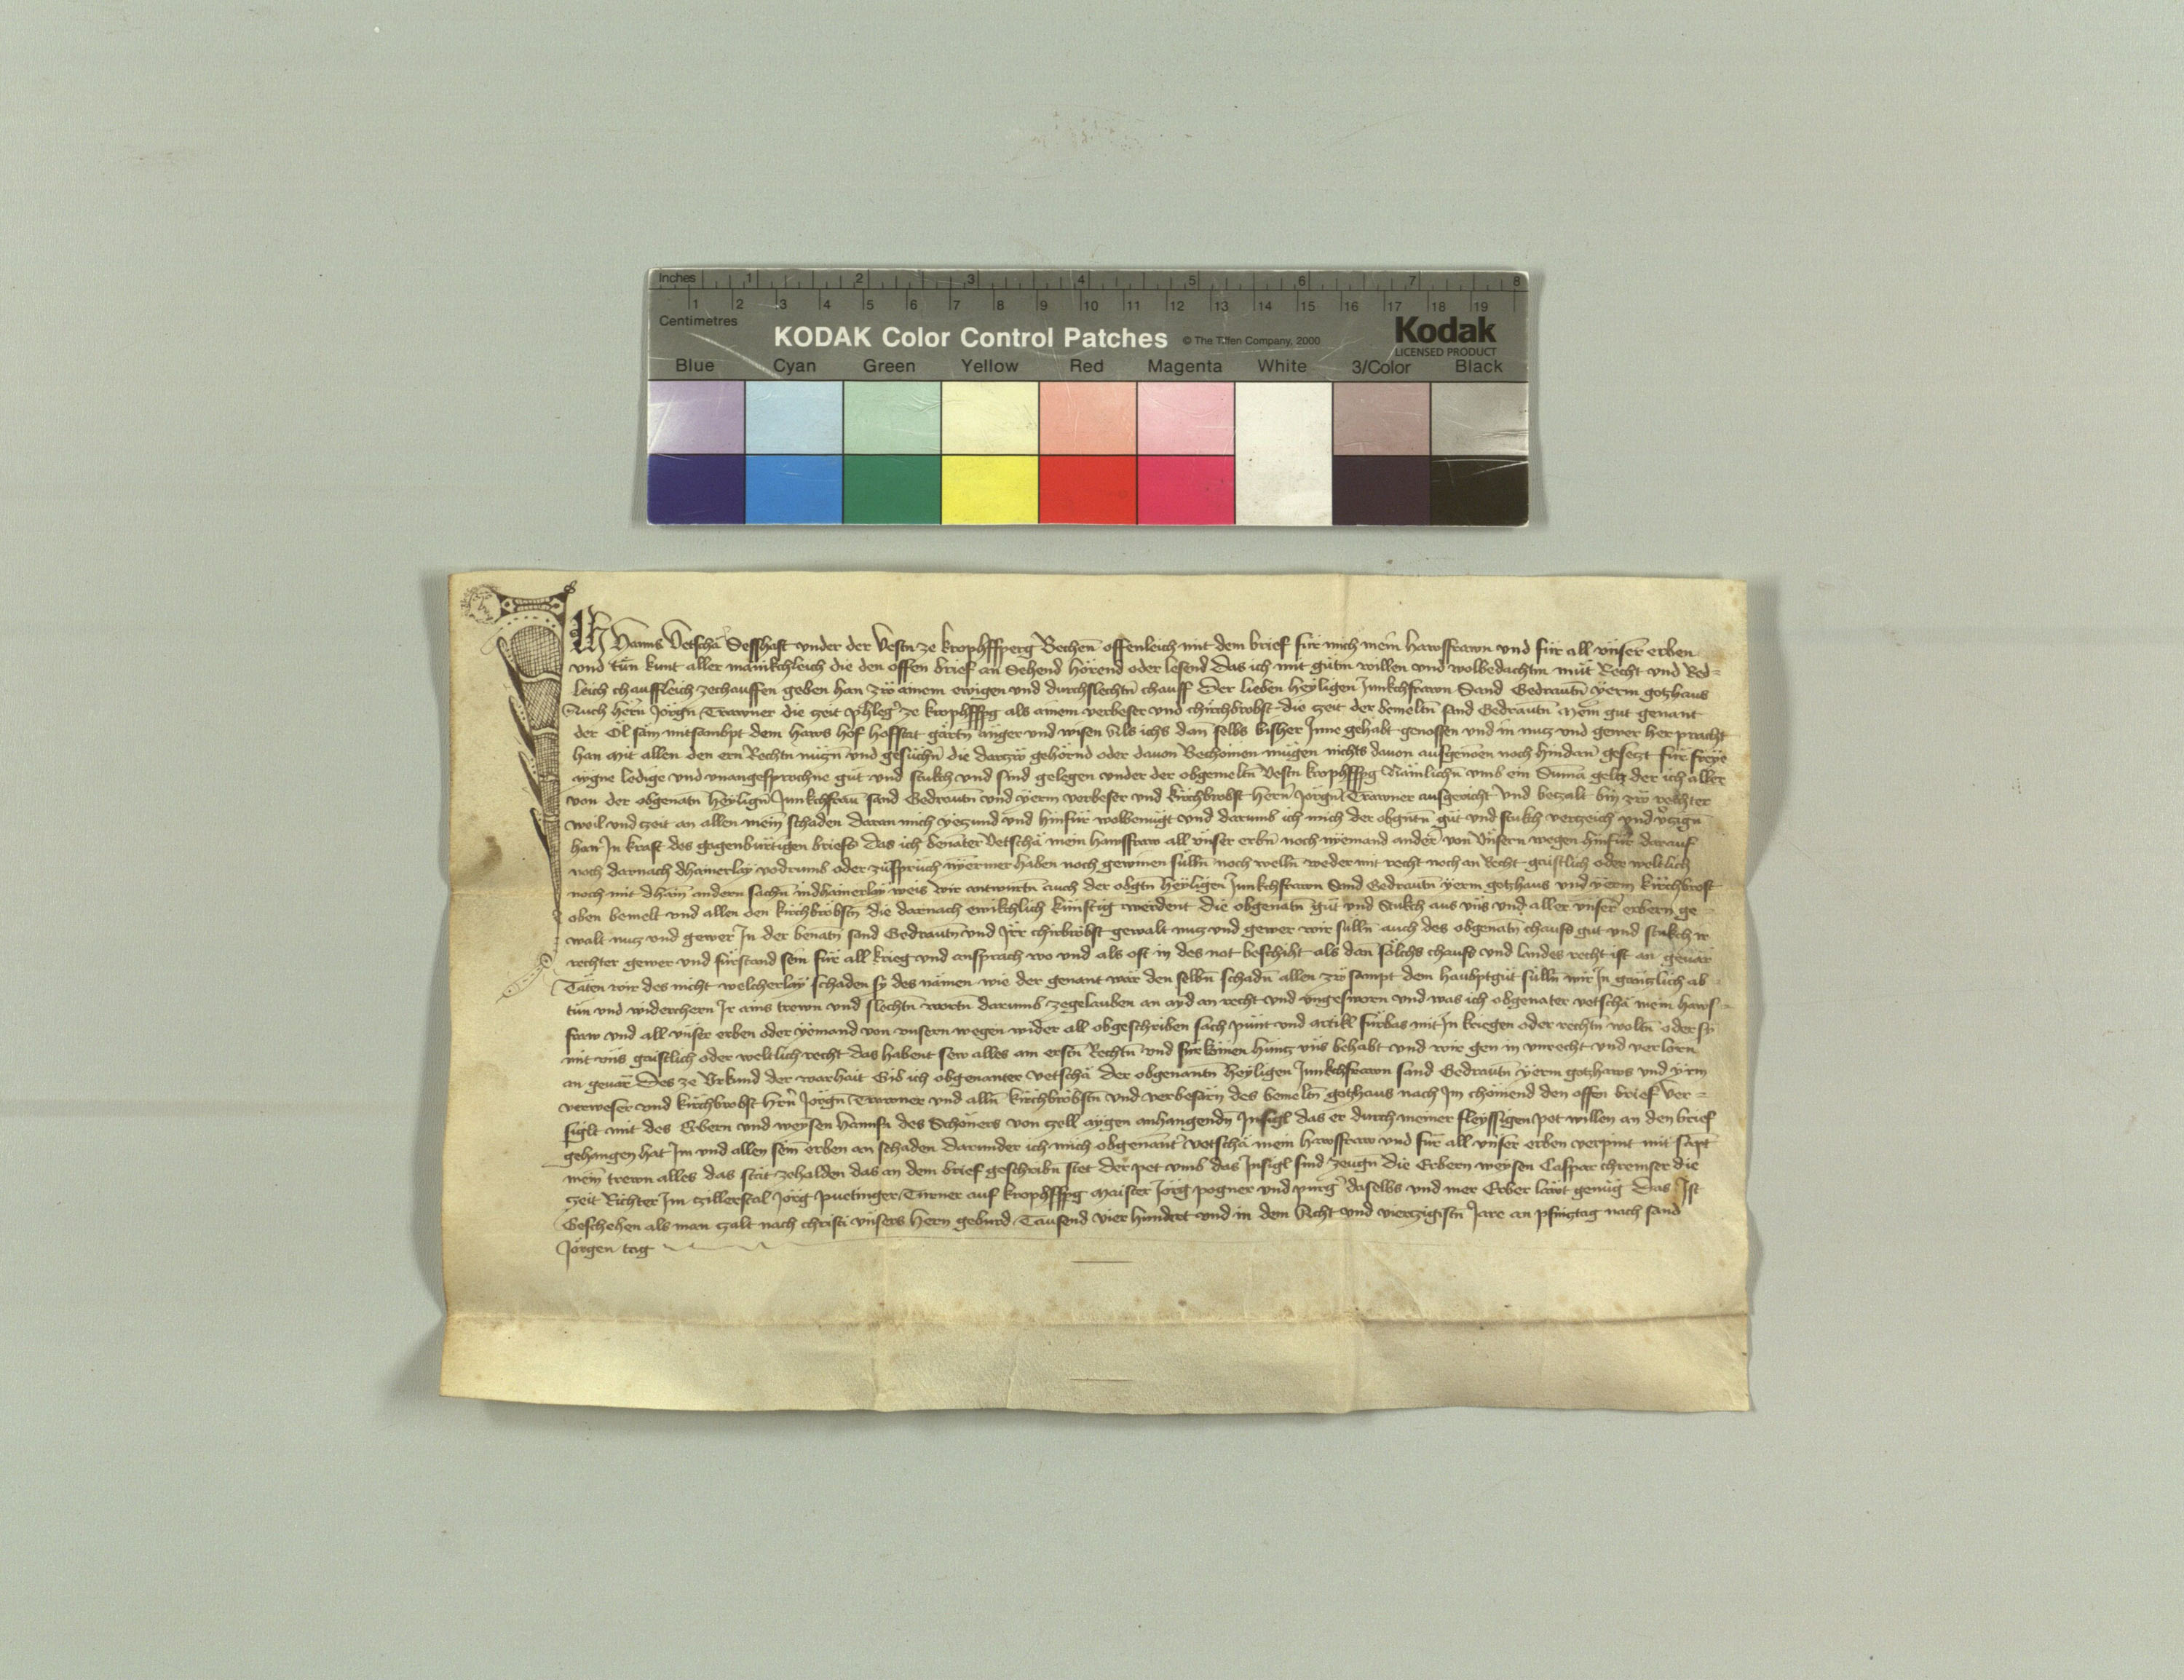 Inches 1 2 3 4 5 6 7 8
1 2 3 4 5 6 7 8 9 10 11 12 13 14 15 16 17 18 19
Centimetres
KODAK Color Control Patches © The Tiffen Company, 2000 Kodak
LICENSED PRODUCT
Blue Cyan Green Yellow Red Magenta White 3/Color Black
Ich Hanns Vetschä Sesshaft under der Vestn ze krophffsperg Bechen offenleich mit dem brief für mich mein hawsfrawn und für all unser erben
und tün kunt aller mänikchleich die den offen brief an Sehend hörend oder lesend Das ich mit gütm willen und wolbedachtm müt Recht und Red-
leich chauffleich zechauffen geben han zw ainem ewigen und durchslechtn chauff Der lieben heyligen Junkchfrawn Sand Gedrautn yerm gotzhaus
Auch hern Jörgn Trawner die zeit phleg ze krophffpg als ainem verbeser und chirchbrobst die zeit der bemeltn sand Gedrautn Mein gut genant
der Öl säm mitsambpt dem haws hof hofstat gärtn anger und wisen Als ichs dan selbs bisher Inne gehabt genossen und in nutz und gewer her pracht
han Mit allen den ern Rechtn nützn und gesüchn die dartzü gehörnd oder davon Bechömen mügen nichts davon ausgenoen noch hindan gesetzt für freye
aygne ledige und unangesprochne güt und stukch und sind gelegen under der obgemeltn Vestn krophffpg Nämlichn umb ein Suma geltz der ich aller
von der obgenatn heylign Junkchfrau sand Gedrautn und yerm verbeser und kirchbrobst hern Jörgn Trawner ausgericht und betzalt bin zw rechter
weil und zeit an allen mein schaden daran mich yetzund und hinfür wolbenügt und darumb ich mich der obgntn güt und stukch vertzeich und vtzign
han In kraft des gagenbürtigen briefs Das ich benäter Vetschä mein hawsfraw all unser erbn noch nyemand ander von Unsern wegen hinfür darauf
noch darnach dhainerlay vodrumb oder züsprüch nymer haben noch gewinen sülln noch welln weder mit recht noch an Recht gaistlich oder weltlich
noch mit dhain andern sachn in dhainerlay weis wir antwurtn auch der obgtn heyligen Junkchfrawn Sand Gedrautn yerm gotzhaus und yerm kirchbrost
oben bemelt und allen den kirchbröbstn die darnach ewikchlich künftig werdent die obgenatn güt und Stukch aus uns und aller unser erbern ge-
walt nutz und gewer In der benatn sand Gedrautn und Irr chirbröbst gewalt nutz und gewer wir sülln auch des obgenatn chaufs gut und stukch ir
rechter gewer und fürstand sein für all krieg und ansprach wo und als oft in des not beschiht als dan sölchs chaufs und landes recht ist an gevär
Täten wir des nicht welcherlay schaden sy des nämen wie der genant wär den selbn schadn allen zw sampt dem haubptgüt sülln wir In gäntzlich ab
tün und widerchern Ir ains trewn und slechtn wortn darumb zegelauben an ayd an recht und ungesworn und was ich obgenater vetschä mein haws-
fraw und all unser erben oder yemand von unsern wegen wider all obgeschriben sach pünt und artikl fürbas mit In kriegen oder rechtn woltn oder sy
mit uns gaistlich oder weltlich recht das habent sew alles am erstn Rechtn und für komen hintz uns behabt und wir gen in unrecht und verlorn
an gevär Des ze Urkund der warhait Gib ich obgenanter vetschä der obgenantn heyligen Junkchfrawn sand Gedrautn yerm gotzhaws und yrm
verweser und kirchbrobst hern Jörgn Trawner und alln kirchbröbstn und verbesärn des bemeltn gotzhaus nach Im chömend den offen brief Ver-
siglt mit des Erbern und weysen hannsn des Schöners von zell aygen anhangendn Insigl das er durch meiner fleyssigen pet willen an den brief
gehangen hat Im und allen sein erben an schaden darunder ich mich obgenant vetschä mein hawsfraw und für all unser erben verpint mit sapt
mein trewn alles das stät zehalden das an dem brief geschribn stet der pet umb das Insigl sind zeugn die Erbern weysen Caspar chremser die
zeit Richter Im zillerstal Jörg puetinger Türner auf krophffpg Maister Jörg pogner und purg daselbs und mer Erber läwt genüg Das Ist
Geschehen als man zalt nach christi unsers hern geburd Tausend vier hundert und in dem Acht und viertzigistn Jare an pfintztag nach sand
Jörgen tag